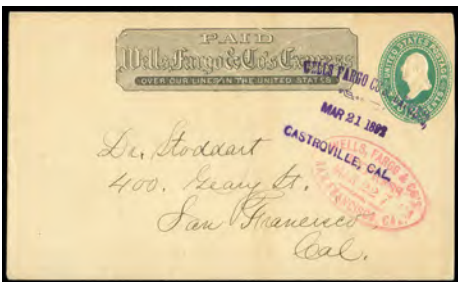 PAID
Wells Fargo & Co's Express
OVER OUR LINES IN THE UNITED STATES
UNITED STATES POSTAGE
WELLS FARGO & CO'S EXPRESS,
MAR 21 1892
CASTROVILLE, CAL.
Dr. Stoddart
400. Geary St.
San Francisco
Cal.
WELLS, FARGO & CO'S
MAR 22
SAN FRANCISCO, CAL.